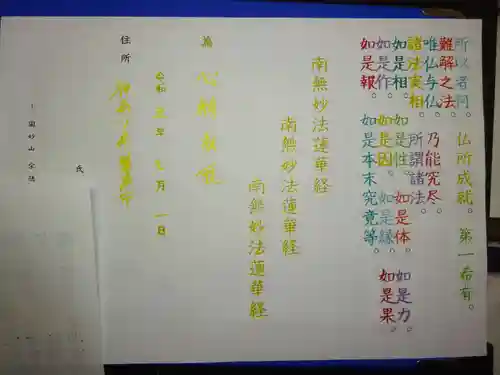 所以者何。仏所成就。第一希有。
難解之法。
唯仏与仏。乃能究尽。
諸法実相。所謂諸法。
如是相。如是性。如是体。如是力。
如是作。如是因。如是縁。如是果。
如是報。如是本末究竟等。
南無妙法蓮華経
南無妙法蓮華経
南無妙法蓮華経
為
令和 元年 七月 一日
住所